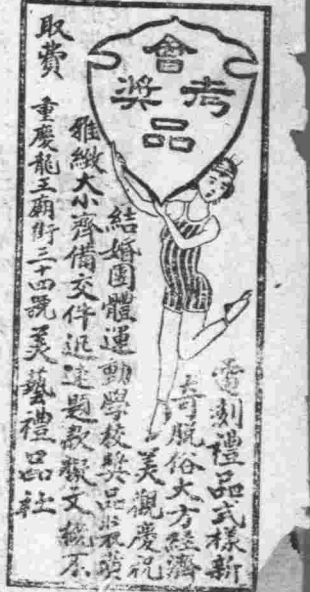 會考
獎品
電刻禮品式樣新
奇脫俗大方經濟
美觀慶祝
結婚團體運動學校獎品裝璜
雅緻大小齊備交件迅速題款擬文統不
取費 重慶龍王廟街三十四號 美藝禮品社